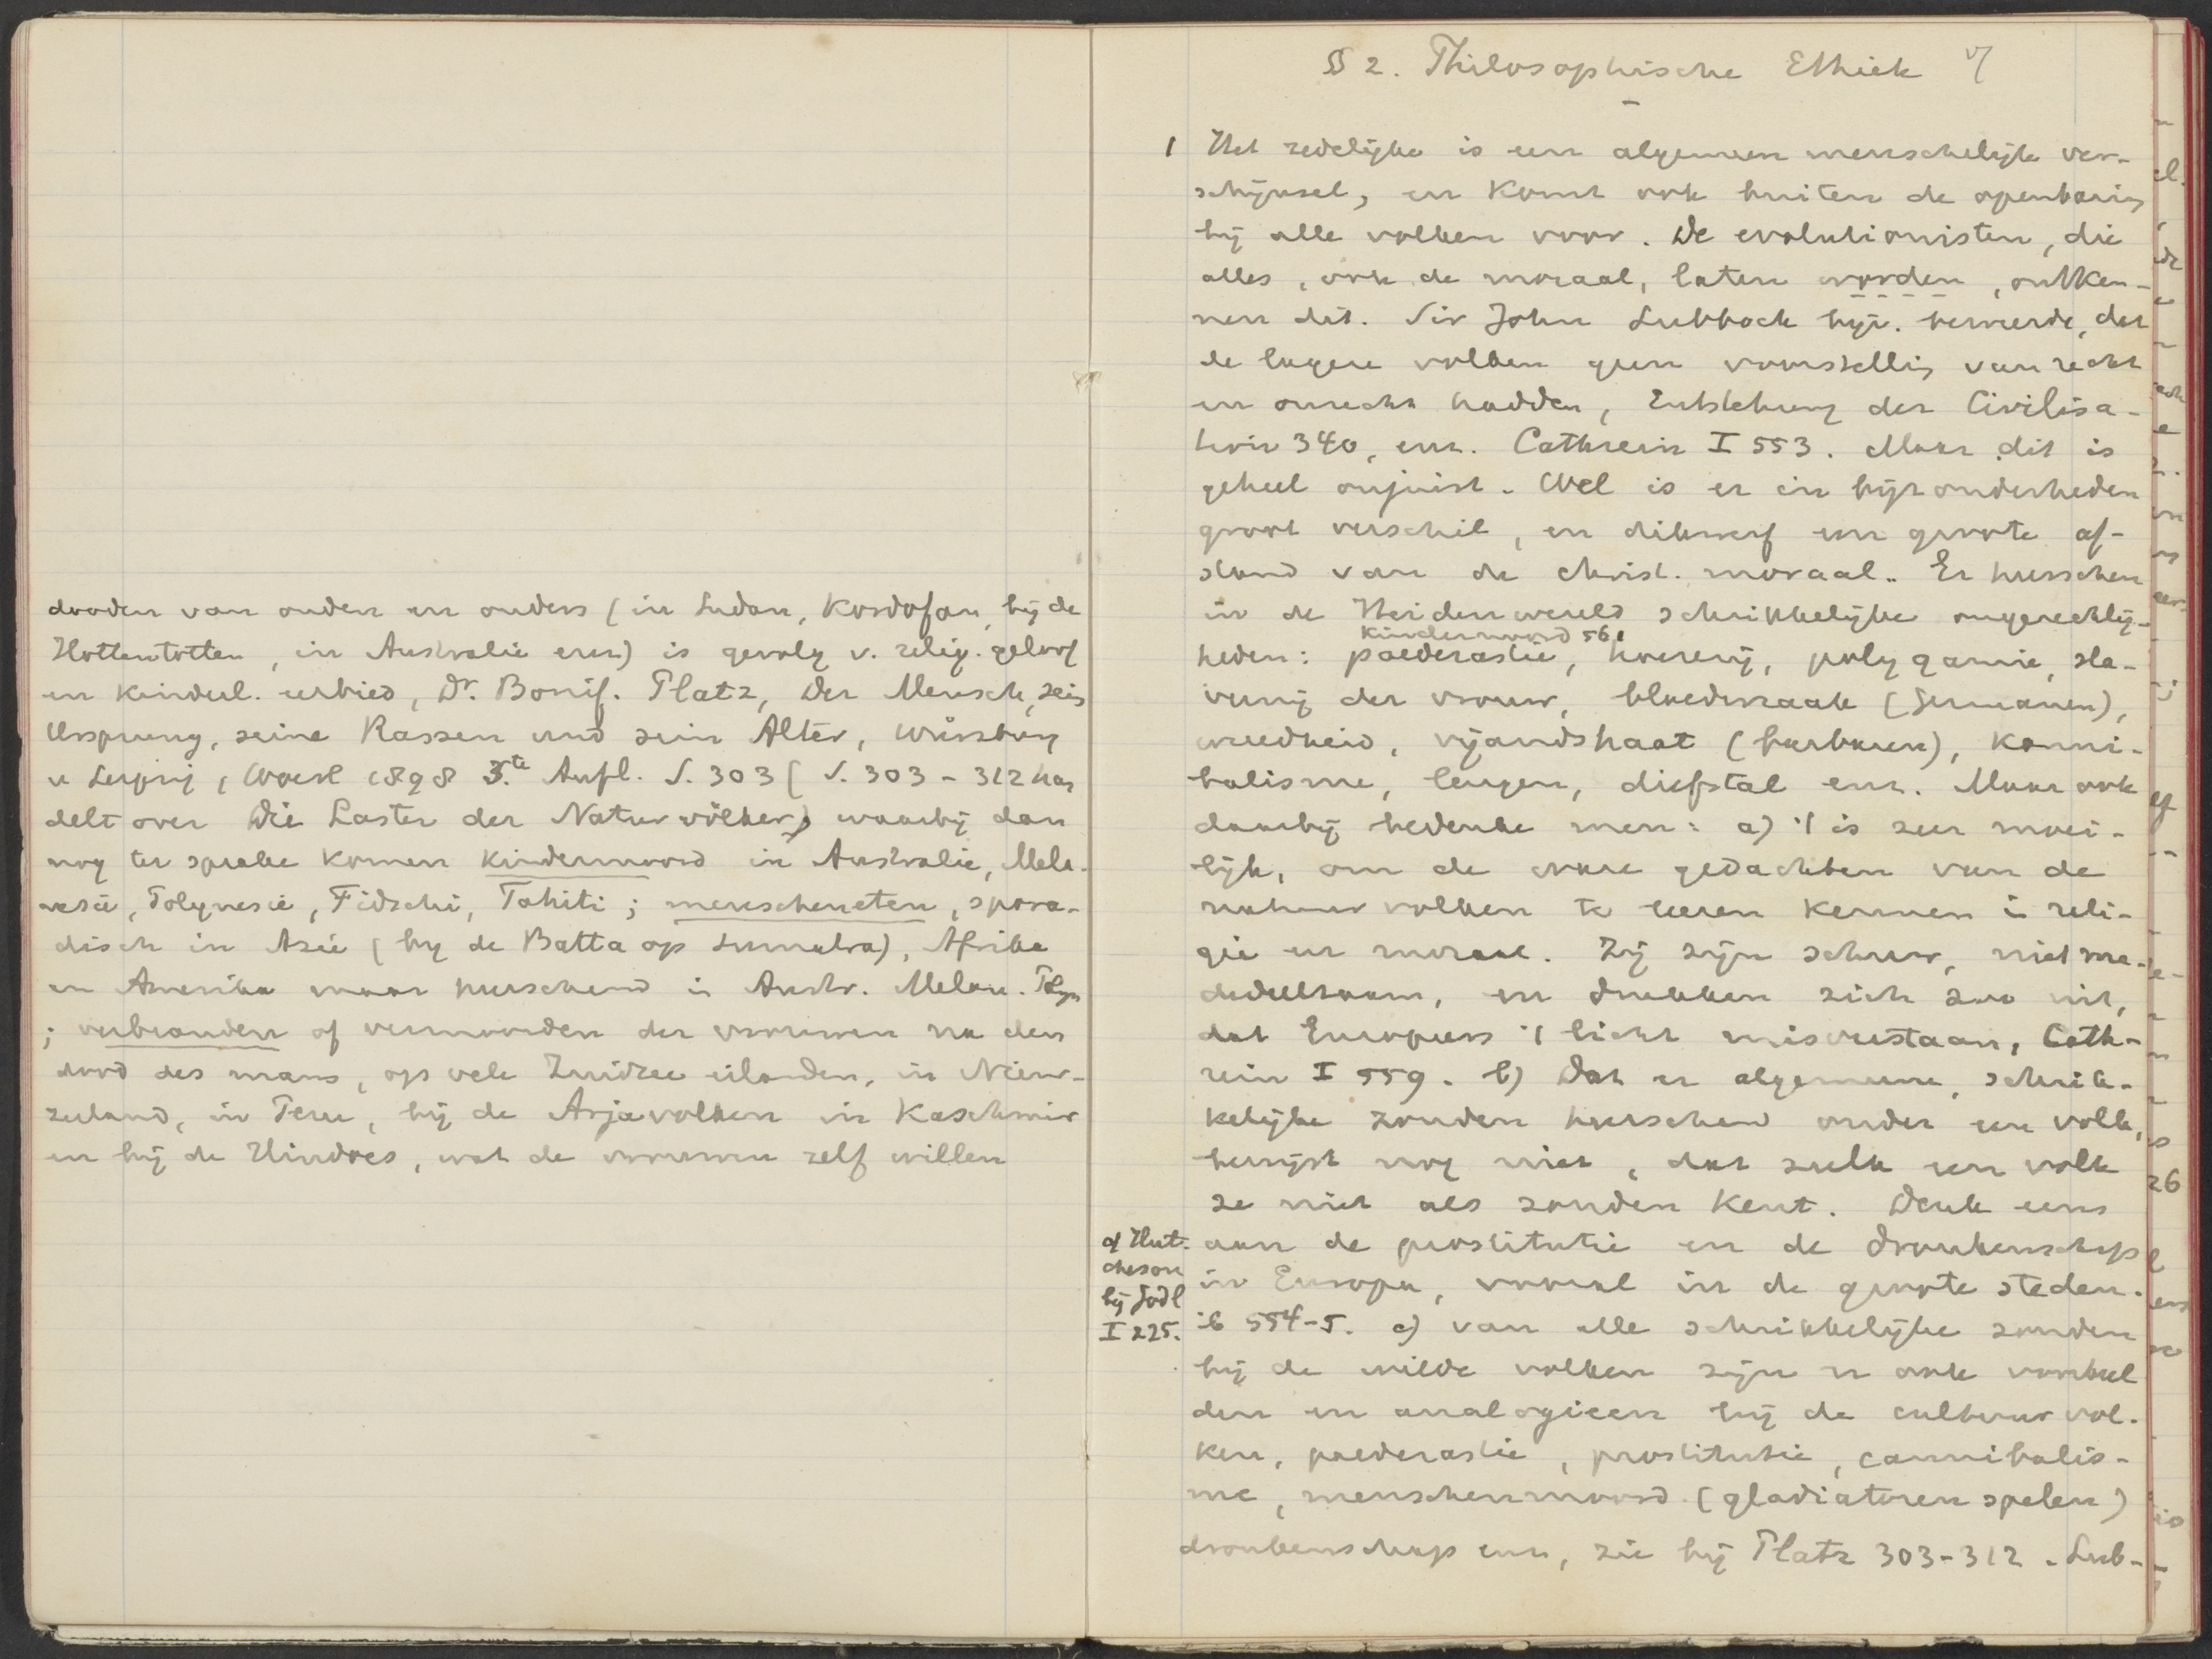 dooden van ouden en ouders (in Sudan, Kordofan, bij de
Hottentotten, in Australie enz) is gevolg v. relig. geloof
en kinderl. eerbied, Dr. Bonif. Platz, Der Mensch, sein
Ursprung, seine Rassen und sein Alter, Würzburg
u Leipzig, Woerl 1898 3.te Aufl. S. 303 [S. 303 - 312 han
delt over Die Laster der Naturvölker) waarbij dan
nog ter sprake komen kindermoord in Australie, Mela-
nesië, Polynesië, Fidschi, Tahiti; menscheneten, spora-
disch in Azië (by de Batta op Sumatra), Afrika
en Amerika maar heerschend in Austr. Melan. Polyn
; verbranden of vermoorden der vrouwen na den
dood des mans, op vele Zuidzee eilanden, in Nieuw-
zeeland, in Peru, bij de Arjavolken in Kaschmir
en bij de Hindoes, wat de vrouwen zelf willen
§ 2. Philosophische Ethiek
1 Het zedelijke is een algemeen menschelijk ver-
schijnsel, en komt ook buiten de openbaring
bij alle volken voor. De evolutionisten, die
alles, ook de moraal, laten worden, ontken-
nen dit. Sir John Lubbock bijv. beweerde, dat
de lagere volken geen voorstelling van recht
en onrecht hadden, Entstehung der Civilisa-
tion 340, enz. Cathrein I 553. Maar dit is
geheel onjuist. Wel is er in bijzonderheden
groot verschil, en dikwerf een groote af-
stand van de christ. moraal. Er heerschen
in de Heidenwereld schrikkelijke ongerechtig-
kindermoord 561
heden: paederastie, hoererij, polygamie, sla-
vernij der vrouw, bloedwraak (Germanen),
wreedheid, vijandshaat (barbaren), kanni-
balisme, leugen, diefstal enz. Maar ook
daarbij bedenke men: a) 't is zeer moei-
lijk, om de ware gedachten van de
natuurvolken te leeren kennen in reli-
gie en moraal. Zij zijn schuw, niet me-
dedeelzaam, en drukken zich zoo uit,
dat Europeers 't licht misverstaan, Cath-
rein I 559. b) Dat er algemeene, schrik-
kelijke zonden heerschen onder een volk,
bewijst nog niet, dat zulk een volk
ze niet als zonden kent. Denk eens
aan de prostitutie en de dronkenschap
in Europa, vooral in de groote steden.
ib 554-5. c) van alle schrikkelijke zonden
bij de wilde volken zijn er ook voorbeel
den en analogieen bij de cultuurvol-
ken, paederastie, prostitutie, cannibalis-
me, menschenmoord (gladiatoren spelen)
dronkenschap enz, zie bij Platz 303-312. Lub-
cf Hut-
cheson
bij Jodl
I 225.